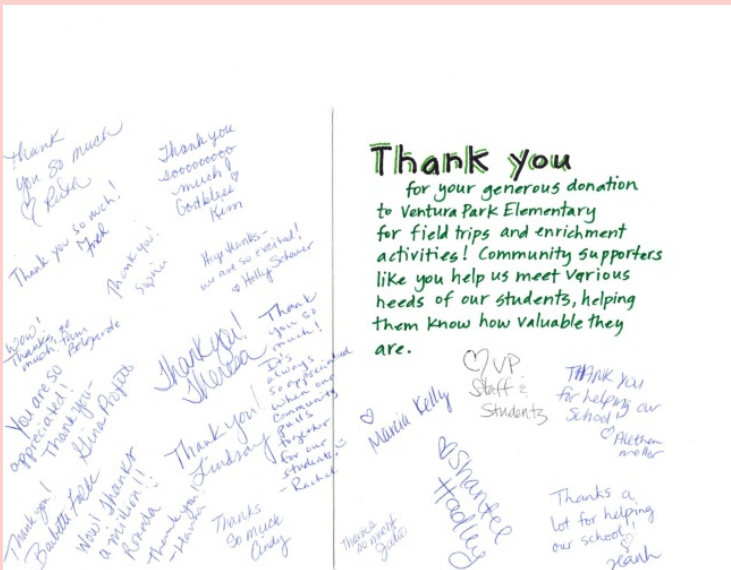 Thank
you so much
♡ Ruth
Thank you
sooooooooo
much!
God bless
Kim
Thank you so much!
Fred
Thank you!
Huge thanks -
we are so excited!
♡ Holly
Wow!
Thanks so
much. Pam
You are so
appreciated!
Thank you -
Gina
Thank you!
Theresa
Thank
you so
much!
It's
always
so appreciated
when our
Community
pulls
together
for our
students.
- Rachel
Thank you!
Lindsay
Thank you!
Babette
Wow! Thanks
a million!!
Ronda
Thank you!
Thanks
So much
Cindy
Thank you
for your generous donation
to Ventura Park Elementary
for field trips and enrichment
activities! Community supporters
like you help us meet various
needs of our students, helping
them know how valuable they
are.
♡ VP
Staff &
Students
♡
Marcia Kelly
THANK YOU
for helping our
School!
♡
♡ Shantel
Hadley
Thanks
so much
Thanks a
lot for helping
our school!
♡